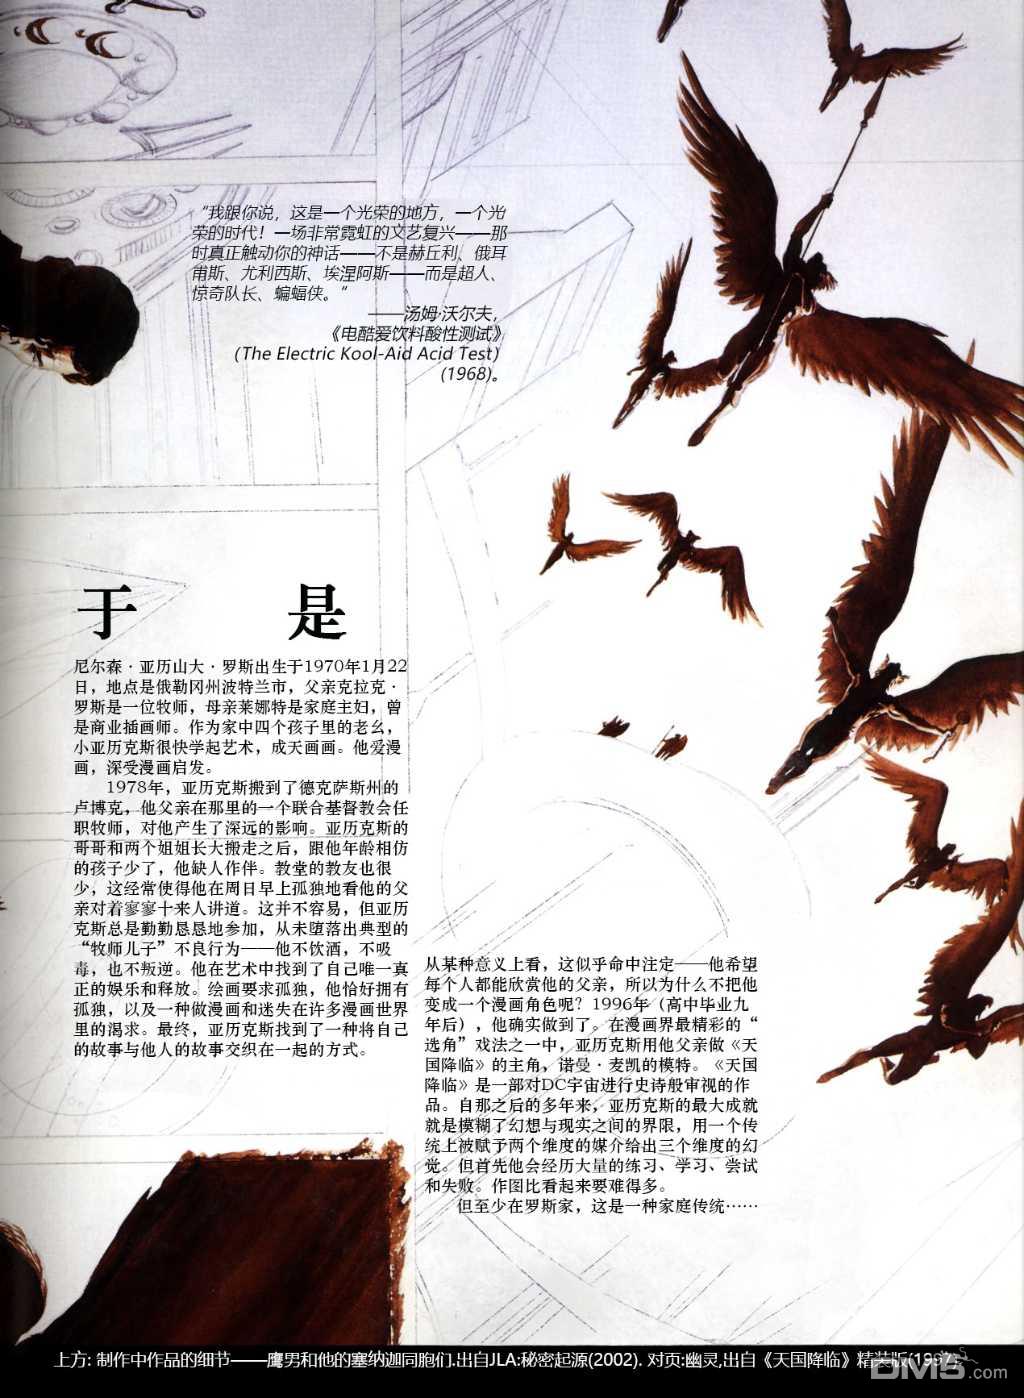 “我跟你说，这是一个光荣的地方，一个光
荣的时代！一场非常霓虹的文艺复兴——那
时真正触动你的神话——不是赫丘利、俄耳
甫斯、尤利西斯、埃涅阿斯——而是超人、
惊奇队长、蝙蝠侠。“
——汤姆·沃尔夫，
《电酷爱饮料酸性测试》
（The Electric Kool-Aid Acid Test）
(1968)。
于 是
尼尔森·亚历山大·罗斯出生于1970年1月22
日，地点是俄勒冈州波特兰市，父亲克拉克·
罗斯是一位牧师，母亲莱娜特是家庭主妇，曾
是商业插画师。作为家中四个孩子里的老幺，
小亚历克斯很快学起艺术，成天画画。他爱漫
画，深受漫画启发。
1978年，亚历克斯搬到了德克萨斯州的
卢博克，他父亲在那里的一个联合基督教会任
职牧师，对他产生了深远的影响。亚历克斯的
哥哥和两个姐姐长大搬走之后，跟他年龄相仿
的孩子少了，他缺人作伴。教堂的教友也很
少，这经常使得他在周日早上孤独地看他的父
亲对着寥寥十来人讲道。这并不容易，但亚历
克斯总是勤勤恳恳地参加，从未堕落出典型的
“牧师儿子”不良行为——他不饮酒，不吸
毒，也不叛逆。他在艺术中找到了自己唯一真
正的娱乐和释放。绘画要求孤独，他恰好拥有
孤独，以及一种做漫画和迷失在许多漫画世界
里的渴求。最终，亚历克斯找到了一种将自己
的故事与他人的故事交织在一起的方式。
从某种意义上看，这似乎命中注定——他希望
每个人都能欣赏他的父亲，所以为什么不把他
变成一个漫画角色呢？1996年（高中毕业九
年后），他确实做到了。在漫画界最精彩的“
选角”戏法之一中，亚历克斯用他父亲做《天
国降临》的主角，诺曼·麦凯的模特。《天国
降临》是一部对DC宇宙进行史诗般审视的作
品。自那之后的多年来，亚历克斯的最大成就
就是模糊了幻想与现实之间的界限，用一个传
统上被赋予两个维度的媒介给出三个维度的幻
觉。但首先他会经历大量的练习、学习、尝试
和失败。作图比看起来要难得多。
但至少在罗斯家，这是一种家庭传统……
上方: 制作中作品的细节——鹰男和他的塞纳迦同胞们.出自JLA:秘密起源(2002). 对页:幽灵,出自《天国降临》精装版(1997)
DM5.com